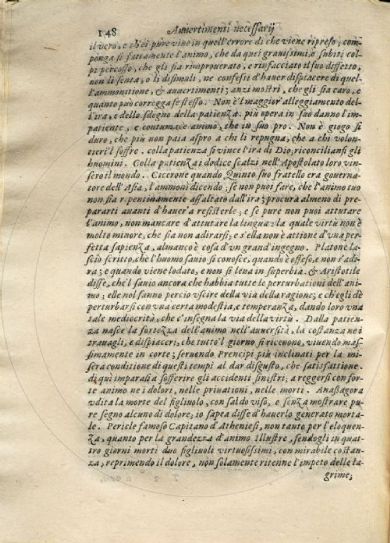 148 Auuertimenti necessarij
il vero, e ch'ei pure viuo in quell'errore di che viene ripreso; com-
ponga sì fattamente l'animo, che da quei grauissimi, e subiti col
pi percosso, che gli sia rimprouerato, e rinfacciato il suo diffetto,
non si scuta, o lì dissimuli, ne confessi d'hauer dispiacere di quel-
l'ammonitione, & auuertimenti; anzi mostri, che gli sia caro, e
quanto può corregga se stesso. Non è'l maggior alleggiamento del-
l'ira, e dello sdegno della patienza. più opera in suo danno l'im-
patiente, e contumace animo, che in suo pro. Non è giogo sì
duro, che più non paia aspro a chi li repugna, che a chi volun-
tieri'l soffre. colla patienza si vince l'ira di Dio, riconciliansi gli
huomini. Colla patienza i dodice scalzi nell'Apostolato loro vin-
sero il mondo. Cicerone quando Quinto suo fratello era gouerna-
tore dell'Asia, l'ammonì dicendo. se non puoi fare, che l'animo tuo
non sia repentinamente assaltato dall'ira procura almeno di pre-
pararti auanti d'hauer a resisterle; e se pure non puoi attutare
l'animo, non mancare d'attutare la lingua; la quale virtù non è
molto minore, che sia non adirarsi; e s'ella non è attione d'vna per
fetta sapienza, almanco è cosa d'vn grand'ingegno. Platone la-
sciò scritto, che l'huomo sauio si conosce, quando è offeso, e non s'adi-
ra; e quando viene lodato, e non si leua in superbia. & Aristotile
disse, che'l sauio ancora che habbia tutte le perturbationi dell'ani-
mo; elle nol fanno perciò vscire della via della ragione; e ch'egli dè
perturbarsi con vna certa modestia, e temperanza, dando loro vna
tale mediocrità, che c'insegna la via della virtù. Dalla patien-
za nasce la fortezza dell'animo nell'auuersità, la costanza ne i
trauagli, e dispiaceri, che tutto'l giorno si riceuono, viuendo mas-
simamente in corte; seruendo Prencipi più inclinati per la mi-
sera condizione di questi tempi al dar disgusto, che satisfattione.
di qui imparasi a sofferire gli accidenti sinistri; a reggersi con for-
te animo ne i dolori, nelle priuationi, nelle morti. Anassagora
vdita la morte del figliuolo, con saldo viso, e senza mostrare pu-
re segno alcuno di dolore; io sapea disse d'hauerlo generato morta-
le. Pericle famoso Capitano d'Atheniesi, non tanto per l'eloquen-
za, quanto per la grandezza d'animo Illustre, sendogli in quat-
tro giorni morti due figliuoli virtuosissimi, con mirabile costan-
za, reprimendo il dolore, non solamente ritenne l'impeto delle la-
grime;